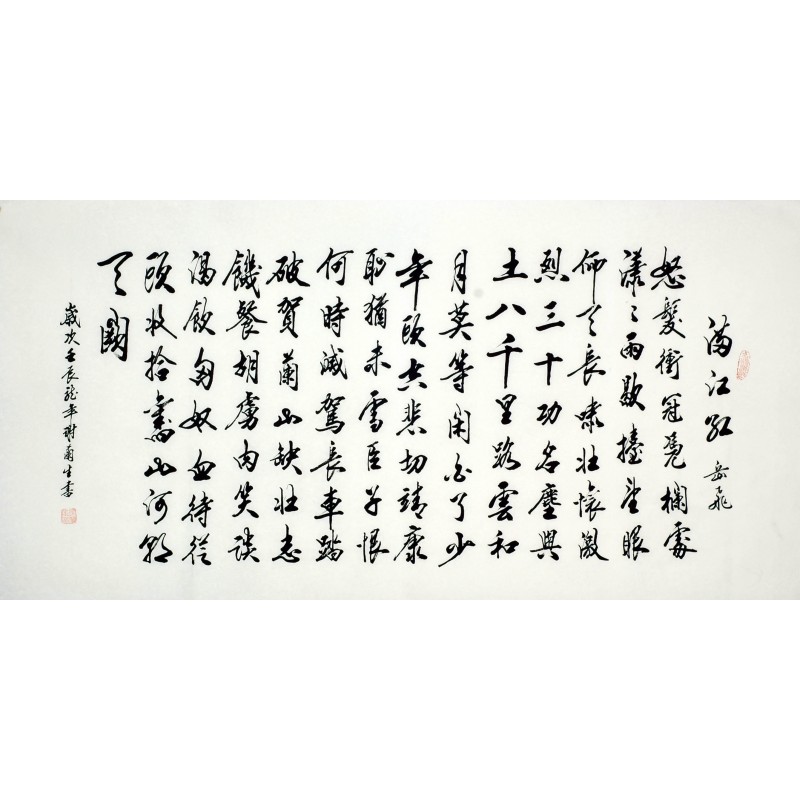 滿江紅 岳飛
怒髮衝冠憑欄處
瀟々雨歇擡望眼
仰天長嘯壯懷激
烈三十功名塵與
土八千里路雲和
月莫等閑白了少
年頭空悲切靖康
恥猶未雪臣子恨
何時滅駕長車踏
破賀蘭山缺壯志
饑餐胡虜肉笑談
渴飲匈奴血待從
頭收拾舊山河朝
天闕
歲次壬辰龍年生書